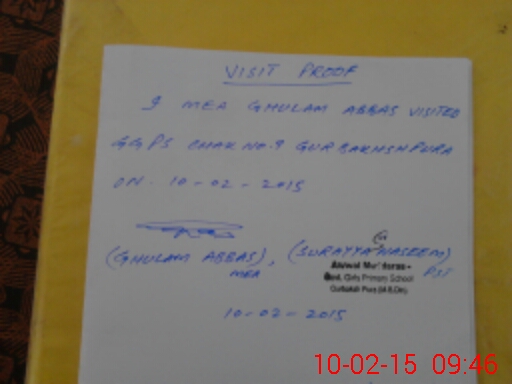 VISIT PROOF
I MEA GHULAM ABBAS VISITED
GGPS CHAK NO.9 GURBAKHSHPURA
ON. 10-02-2015
(GHULAM ABBAS), (SURAYYA NASEEM)
MEA PST
Govt. Girls Primary School
10-02-2015
10-02-15 09:46